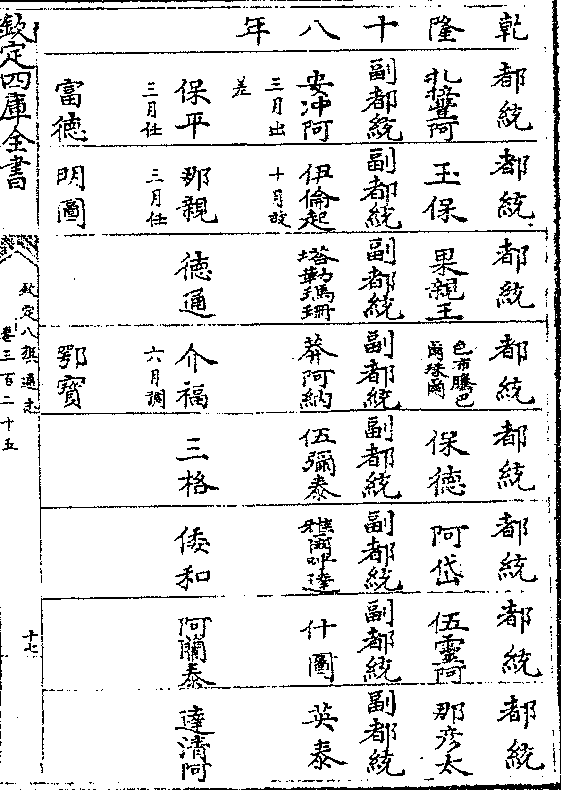 乾隆十八年
都統 都統 都統 都統 都統 都統 都統 都統
玉保 果親王 色布騰巴爾珠爾 保德 阿岱 伍靈阿 那彥太
副都統 副都統 副都統 副都統 副都統 副都統 副都統 副都統
安冲阿 三月出差 伊倫起 十月故 塔勒瑪珊 莽阿納 伍彌泰 什圖 英泰
保平 三月任 那親 三月任 德通 介福 六月調 三格 倭和 阿蘭泰 達清阿
富德 閃圖 鄂寶
欽定四庫全書
欽定八旗通志
卷三百二十五
十七